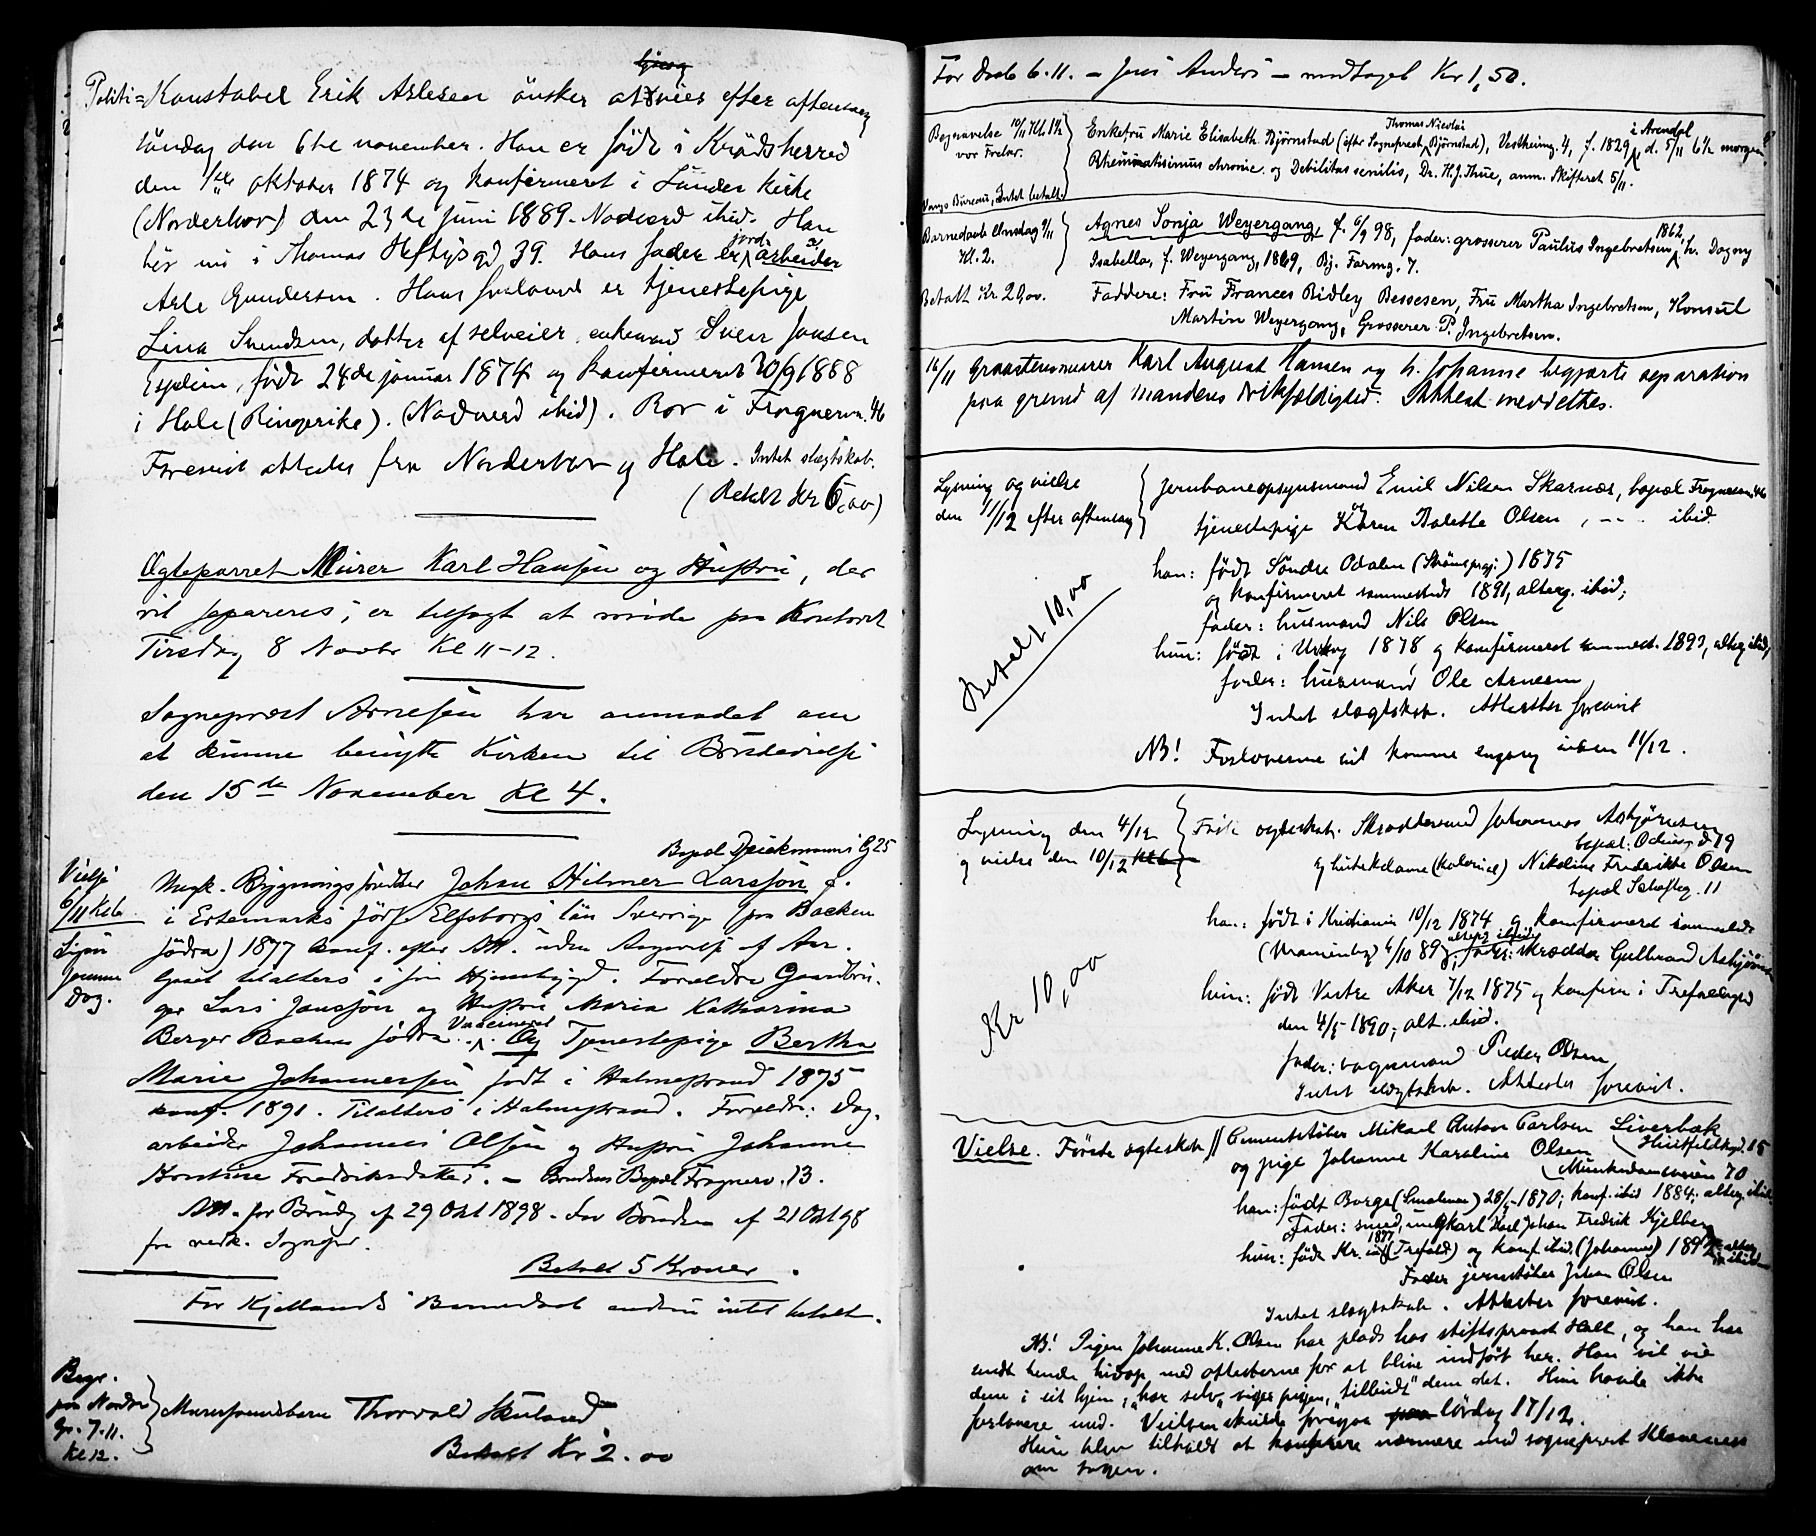 Politi=Konstabel Erik Arlesen önsker at vies efter aftensang
söndag den 6te november. Han er född i Krödsherred
den 1ste oktober 1874 og konfirmeret i Lunder kirke
(Norderhov) den 23de Juni 1889. Nadverd ibid. Han
bor nu i Thomas Heftyes gd 39. Hans fader er jord-arbeider
Arle Gundersen. Hans forlovede er tjenestepige
Lina Svendsen, datter af selveier, enkemand Sven Jonsen
födt 24de januar 1874 og konfirmeret 30/9 1888
i Hole (Ringerike). (Nadverd ibid). Bor i Frognervn. 46
Forevist attester fra Norderhov og Hole. Intet slægtskab.
(Betalt Kr 6,00)
Ægteparret Murer Karl Hansen og Hustru, der
vil separeres, er tilsagt at möde paa Kontoret
Tirsdag 8 Novbr Kl 11-12.
Sogneprest Arnesen har anmodet om
at kunne benytte Kirken til Brudevielse
den 15de November Kl 4.
Bopæl G 25
Vielse
6/11 Kl 6
Lysn
samme
Dag.
Ungk. Bygningssnedker Johan Hilmer Larsson f.
i Ertemarks Elfsborgs län Sverrige (paa Backen
Södra) 1877 konf. efter Att. uden Angivelse af Aar.
tilalters i sin Hjembygd. Forældre Gaardbru-
ger Lars Jansson og Hustru Maria Katharina
Berger Backen Södra. Vaccineret. Og Tjenestepige Bertha
Marie Johannessen födt i Holmestrand 1875
konf. 1891. Tilalters i Holmestrand. Forældre: Dag-
arbeider Johannes Olsen og Hustru Johanne
Fredriksdatter. – Brudens Bopæl Frognerv. 13.
Att. for Brudg af 29 Okt 1898. For Bruden af 21 Okt 98
fra vedk. Sogneprest.
Betalt 5 Kroner.
For Kjellands Barnedaab endnu intet betalt.
Begr.
paa Nordre
Gr. 7-11.
Kl 12.
Murersvendsbarn Thorvald
Betalt Kr 2.00
For Daab 6-11. – Jens Anders – modtaget Kr 1,50.
Begravelse 10/11 Kl. 1½
vor Frelser.
Vangs Bureau, Intet betalt.
Enkefru Marie Elisabeth Bjørnstad (efter Sogneprest Thomas Nicolai Bjørnstad), Vestheimg. 4, f. 1829 i Arendal d. 5/11 6½ morgen.
Rheumatismus chronic. og Debilitas senilis, Dr. H. J. Thue, anm. Skifteret 5/11.
Barnedaab Onsdag 9/11
Kl. 2.
Betalt Kr. 20,00.
Agnes Sonja Weyergang, f. 6/9 98, fader: grosserer Paulus Ingebretsen 1862, h. Dagny
Isabella, f. Weyergang, 1869, Bj. Farmg. 7.
Faddere: Fru Frances Ridley Bessesen, Fru Martha Ingebretsen, Konsul
Martin Weyergang, Grosserer P. Ingebretsen.
16/11 Graastensmurer Karl August Hansen og h. Johanne begjærte separation
paa grund af mandens drikfældighed. Attest meddeltes.
Lysning og vielse
den 11/12 efter aftensang
Jernbaneopsynsmand Emil Nilsen Skarnæs, bopæl Frognerv. 46
og tjenestepige Karen Bolette Olsen, – – ibid.
han: födt Söndre Odalen (Strömsprgj.) 1875
og konfirmeret sammesteds 1891, alterg. ibid;
fader: husmand Nils Olsen
hun: födt i Urskog 1878 og konfirmeret sammest. 1893, alterg. ibid,
fader: husmand Ole Arnesen
Intet slægtskab. Attester forevist
NB! Forloverne vil komme engang inden 11/12.
Betalt 10,00
Lysning den 4/12
og vielse den 10/12 Kl 6
Förste ægteskab. Skræddersvend Johannes Asbjörnsen
bopæl: Odinsg. 19
og butikdame (kolonial) Nikoline Fredrikke Olsen
bopæl Schøftesg. 11
han: födt i Kristiania 10/12 1874 og konfirmeret sammesteds
(Uranienborg) 6/10 89; alterg. ibid; fader: skrædder Gulbrand Asbjörnsen
hun: födt Vestre Aker 7/12 1875 og konfirm i Trefoldighed
den 4/5 1890; alt. ibid.
fader: vognmand Peder Olsen
Intet slægtskab. Attester forevist.
Kr 10,00
Vielse. Förste ægteskab // Cementstöber Mikael Anton Carlsen Liverbak
Huitfeldtsgd. 15
og pige Johanne Karoline Olsen
Munkedamsveien 70
han: födt Borge (Smalenene) 1870; konf. ibid 1884; alterg. ibid.
Fader: smed, ungkarl Karl Johan Fredrik Kjelberg
hun: födt Kr.ia 1877 (Trefold.) og konf. ibid. (Johannes) 1892 alterg. ibid.
Fader jernstöber Johan Olsen
Intet slægtskab. Attester forevist.
NB! Pigen Johanne K. Olsen har plads hos stiftsprovst Hall, og han har
sendt hende hidop med attesterne for at blive indfört her. Han vil vie
dem i sit hjem, "har selv" siger pigen, "tilbudt" dem det. Hun havde ikke
forlovere med. Vielsen skulde foregaa lördag 17/12.
Hun blev tilholdt at konferere nærmere med sogneprest Klaveness
om sagen.